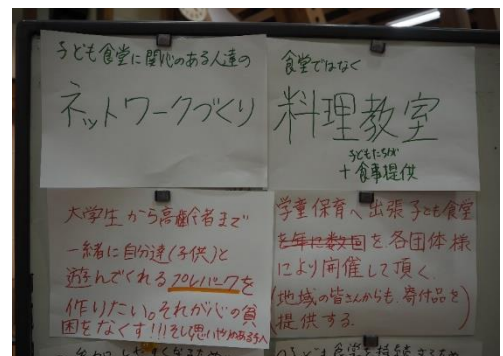 子ども食堂に関心のある人達の
ネットワークづくり
食堂ではなく
料理教室
子どもたちが
+食事提供
大学生から高齢者まで
一緒に自分達(子供)と
遊んでくれるプレパークを
作りたい。それが心の貧
困をなくす!!!そして思いやりのある子へ
学童保育へ出張子ども食堂
を年に数回を各団体様
により開催して頂く。
(地域の皆さんからも、寄付品を)
提供する。